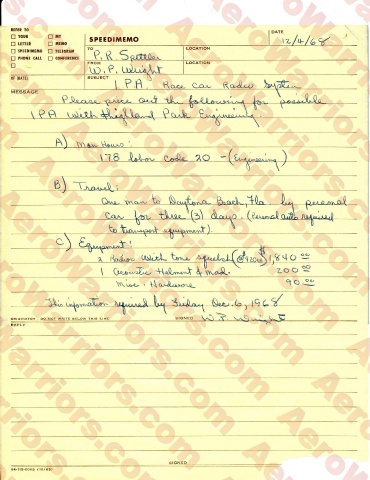 REFER TO
YOUR
MY
LETTER
MEMO
SPEEDIMEMO
TELEGRAM
PHONE CALL
CONFERENCE
OF (DATE)
SPEEDIMEMO
DATE
12/4/68
TO
P.R. Spittler
LOCATION
FROM
W.P. Wright
LOCATION
SUBJECT
IPA. Race Car Radio System
MESSAGE
Please price out the following for possible
IPA with Highland Park Engineering.
A) Man Hours:
178 labor code 20 - (Engineering)
B) Travel:
One man to Daytona Beach, Fla by personal
car for three (3) days. (Personal auto required
to transport equipment).
C) Equipment:
2 Radios with tone squelch (@920ea) $1,840.00
1 Acoustic Helmet & mod. 200.00
Misc. Hardware 90.00
This information required by Friday Dec. 6, 1968
ORIGINATOR - DO NOT WRITE BELOW THIS LINE
SIGNED
W.P. Wright
REPLY
SIGNED
AeroWarriors.com